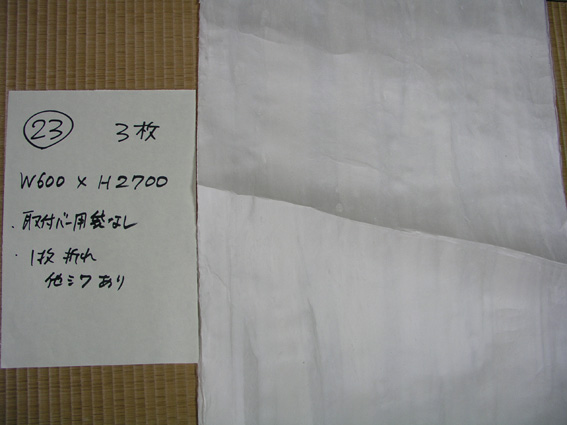 ㉓ 3枚
W600 × H2700
・取付バー用袋なし
・1枚 折れ
他シワあり